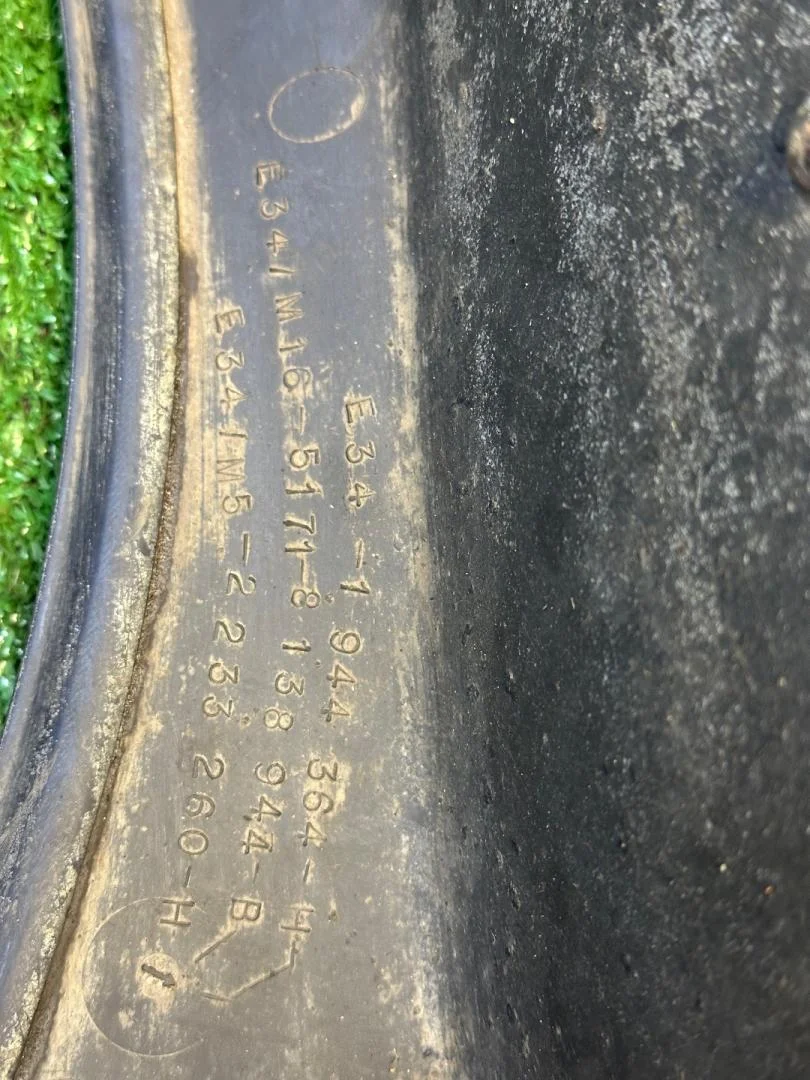 E34 -1 944 364-H
E34/M16-5171-8 138 944-B
E34/M5-2 233 260-H
1